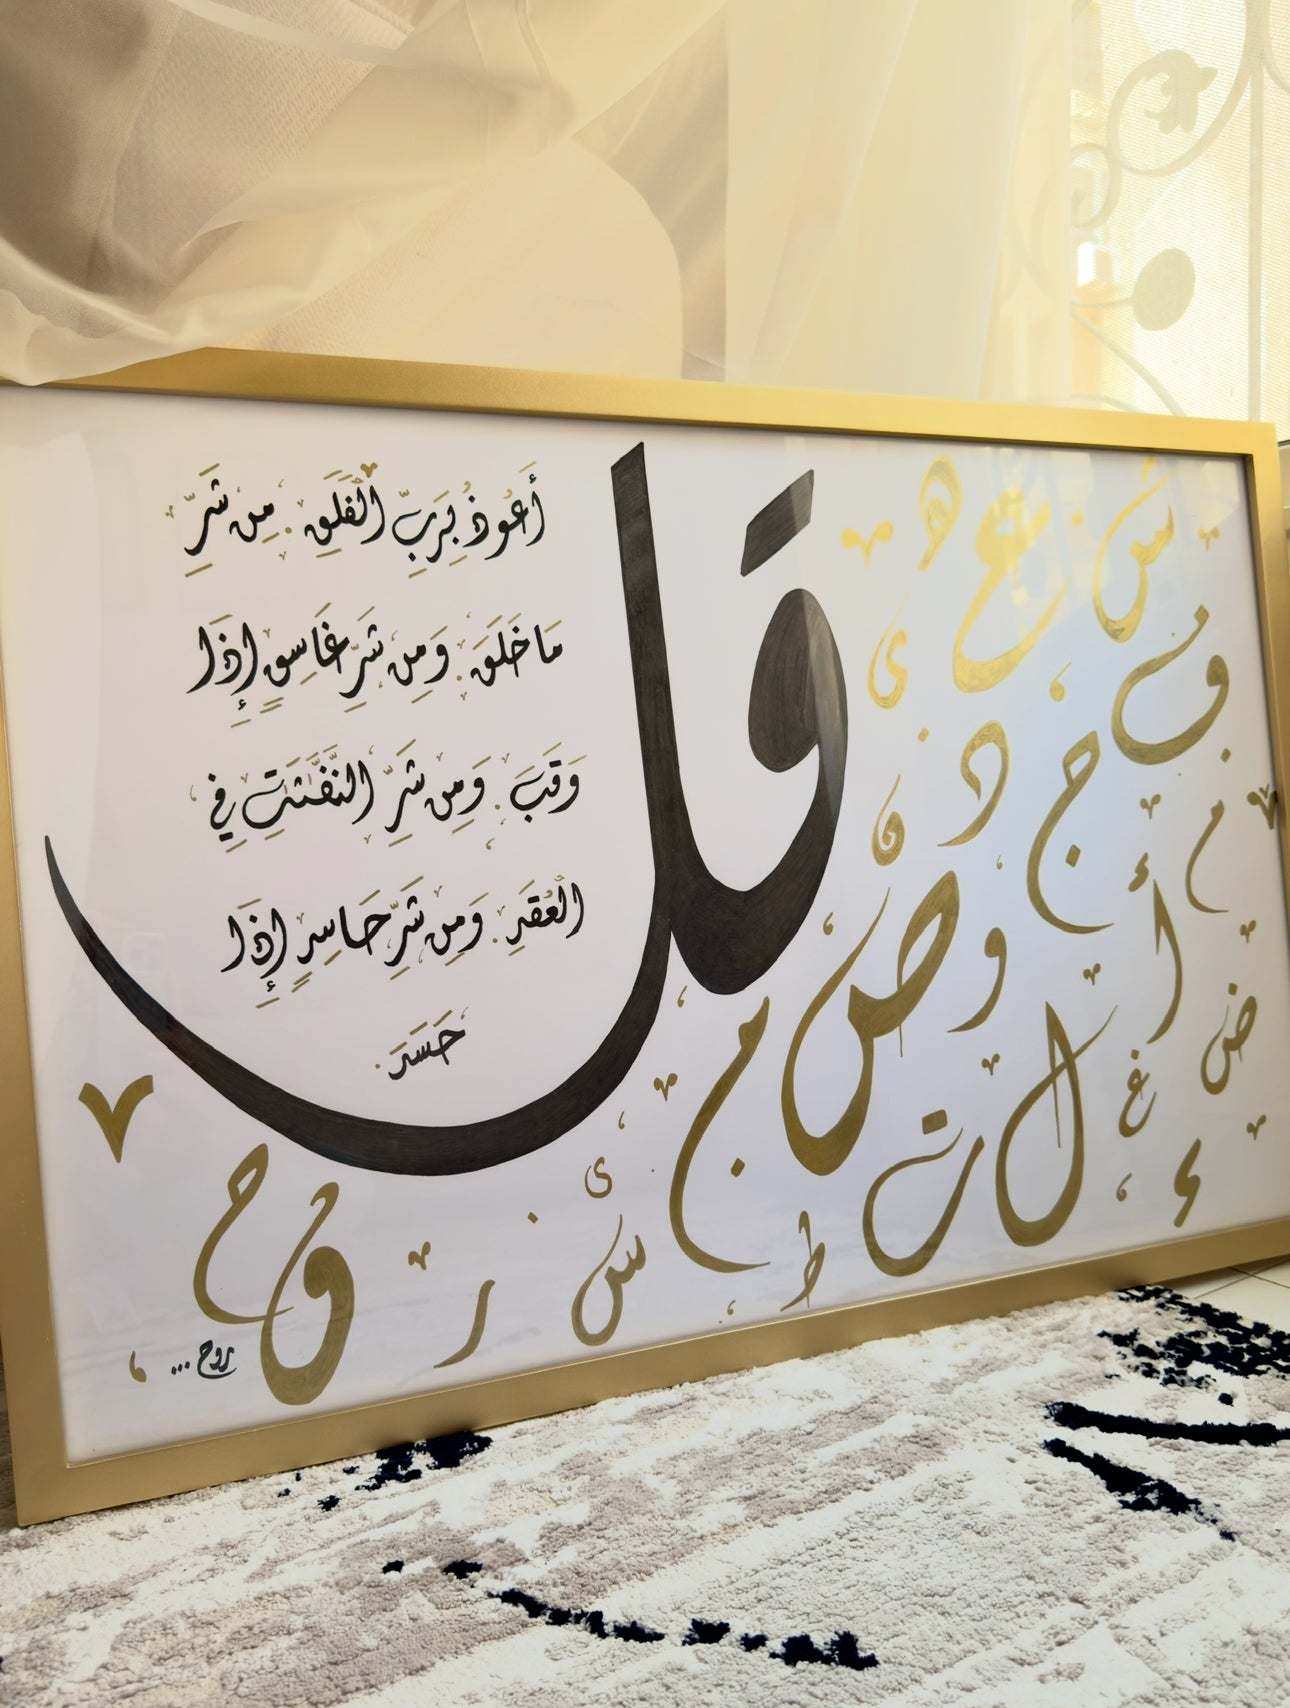 قل
أَعُوذُ بِرَبِّ الْفَلَقِ مِن شَرِّ
مَا خَلَقَ وَمِن شَرِّ غَاسِقٍ إِذَا
وَقَبَ وَمِن شَرِّ النَّفَّثَتِ فِي
الْعُقَدِ وَمِن شَرِّ حَاسِدٍ إِذَا
حَسَدَ
روح ...